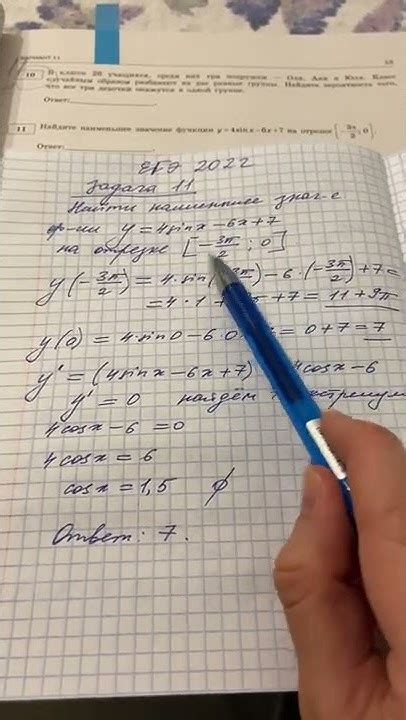 ВАРИАНТ 11
10 В классе 26 учащихся, среди них три подружки — Оля, Аня и Юля. Класс
случайным образом разбивают на две равные группы. Найдите вероятность того,
что все три девочки окажутся в одной группе.
Ответ:
11 Найдите наименьшее значение функции y=4sinx−6x+7 на отрезке [−3π/2; 0].
Ответ:
ЕГЭ 2022
Задача 11
Найти наименьшее знач-е
ф-ии y=4sinx−6x+7
на отрезке [−3π/2; 0]
y(−3π/2)=4·sin(−3π/2)−6·(−3π/2)+7=
=4·1+ +7=11+9π
y(0)=4·sin0−6·0 =0+7=7
y'=(4sinx−6x+7) 4cosx−6
y'=0 найдём экстремум
4cosx−6=0
4cosx=6
cosx=1,5 ∅
Ответ: 7.